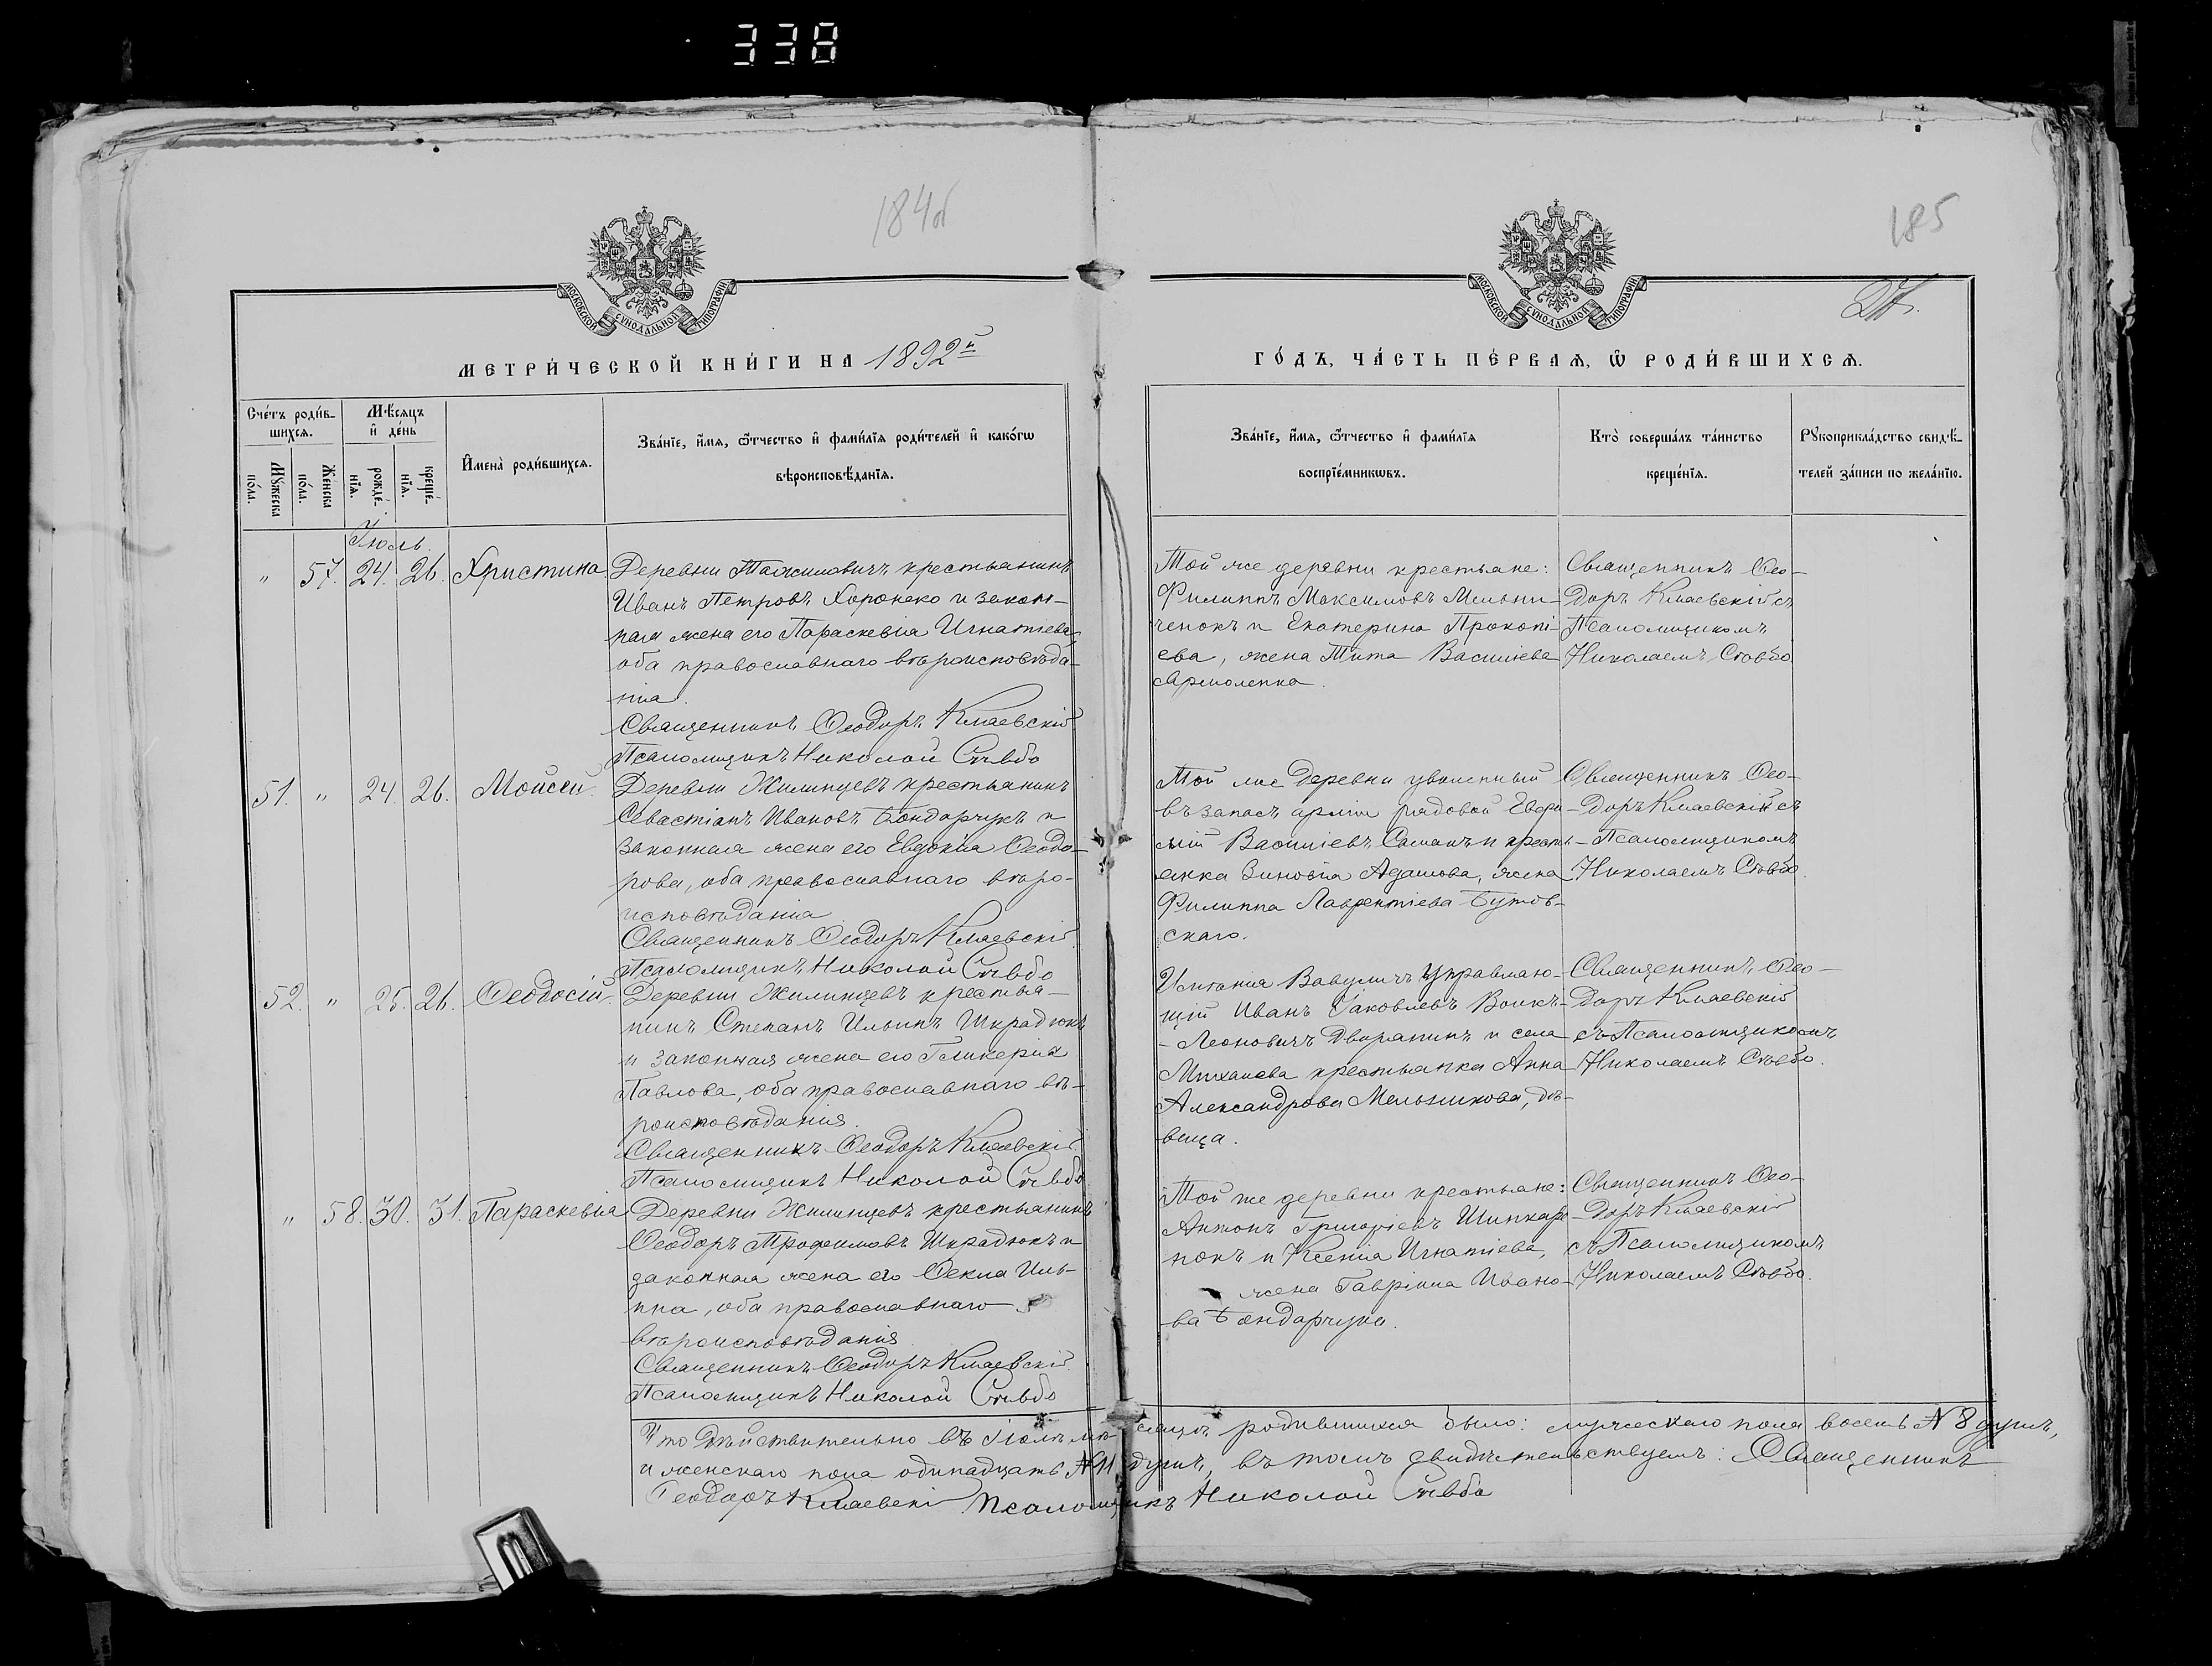 338
184об
185
27.
МОСКОВСКОЙ СѴНОДАЛЬНОЙ ТИПОГРАФІИ
МОСКОВСКОЙ СѴНОДАЛЬНОЙ ТИПОГРАФІИ
МЕТРИ́ЧЕСКОЙ КНИ́ГИ НА 1892й
ГО́ДЪ, ЧА́СТЬ ПЕ́РВАѦ, Ѡ҆ РОДИ́ВШИХСѦ.
Сче́тъ роди́в-
шихсѧ.
Мꙋ́жеска
по́ла.
Же́нска
по́ла.
Мѣ́сѧцъ
и҆ де́нь
рожде́-
нїѧ.
креще́-
нїѧ.
И҆мена̀ роди́вшихсѧ.
Зва́нїе, и҆́мѧ, ѻ҆́тчество и҆ фами́лїѧ роди́телей и҆ како́гѡ
вѣроисповѣ́данїѧ.
Зва́нїе, и҆́мѧ, ѻ҆́тчество и҆ фами́лїѧ
воспрїе́мникѡвъ.
Кто̀ соверша́лъ та́инство
креще́нїѧ.
Рꙋкоприкла́дство свидѣ́-
телей за́писи по жела́нїю.
Іюль.
" 57. 24. 26. Христина
Деревни крестьянинъ
Иванъ Петровъ Хоронеко и закон-
ная жена его Параскевія Игнатіева,
оба православнаго вѣроисповѣда-
нія.
Священникъ Ѳеодоръ Кмаевскій
Псаломщикъ Николай Ст
Той же деревни крестьяне:
Филиппъ Максимовъ Мельни-
ченокъ и Екатерина Прокопі-
ева, жена Тита Васильева
Ярмоленка.
Священникъ Ѳео-
доръ Кмаевскій съ
Псаломщикомъ
Николаемъ
51. " 24. 26. Мойсей.
Деревни Жилинцевъ крестьянинъ
Севастіанъ Ивановъ Бондарчукъ и
законная жена его Евдокія Ѳеодо-
рова, оба православнаго вѣро-
исповѣданія
Священникъ Ѳеодоръ Кмаевскій
Псаломщикъ Николай
Той же деревни уволенный
въ запасъ арміи рядовой Евфи-
мій Васильевъ и кресть-
янка Зиновія Адамова, жена
Филиппа Лаврентіева Бутов-
скаго.
Священникъ Ѳео-
доръ Кмаевскій съ
Псаломщикомъ
Николаемъ
52. " 25. 26. Ѳеодосій.
Деревни Жилинцевъ крестья-
нинъ Степанъ Ильинъ Шкрадюкъ
и законная жена его Гликерія
Павлова, оба православнаго вѣ-
роисповѣданія.
Священникъ Ѳеодоръ Кмаевскій
Псаломщикъ Николай
Имѣнія Вавуличъ Управляю-
щій Иванъ Іаковлевъ Войкъ-
-Леоновичъ Дворянинъ и села
Михаиева крестьянка Анна
Александрова Мельникова, дѣ-
вица.
Священникъ Ѳео-
доръ Кмаевскій
съ Псаломщикомъ
Николаемъ
" 58. 30. 31. Параскевія
Деревни Жилинцевъ крестьянинъ
Ѳеодоръ Трофимовъ Шкрадюкъ и
законная жена его Ѳекла Иль-
ина, оба православнаго
вѣроисповѣданія
Священникъ Ѳеодоръ Кмаевскій.
Псаломщикъ Николай
Той же деревни крестьяне:
Антонъ Григоріевъ Шинкаре-
нокъ и Ксенія Игнатіева,
жена Гавріила Ивано-
ва Бондарчука.
Священникъ Ѳео-
доръ Кмаевскій
съ Псаломщикомъ
Николаемъ
Что дѣйствительно въ Іюлѣ мѣсяцѣ родившихся было: мужескаго пола восемь № 8 душъ,
и женскаго пола одинадцать № 11 душъ, въ томъ свидѣтельствуемъ: Священникъ
Ѳеодоръ Кмаевскій Псаломщикъ Николай